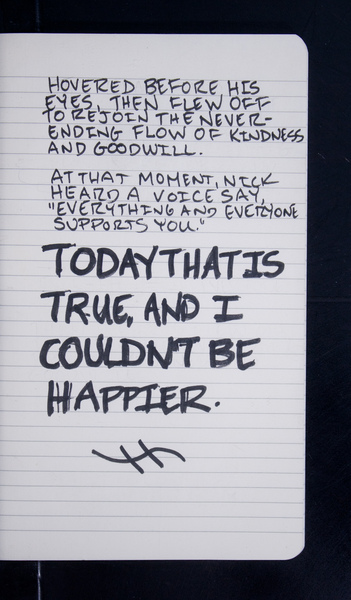 HOVERED BEFORE HIS
EYES, THEN FLEW OFF
TO REJOIN THE NEVER-
ENDING FLOW OF KINDNESS
AND GOODWILL.
AT THAT MOMENT, NICK
HEARD A VOICE SAY,
"EVERYTHING AND EVERYONE
SUPPORTS YOU."
TODAY THAT IS
TRUE, AND I
COULDN'T BE
HAPPIER.